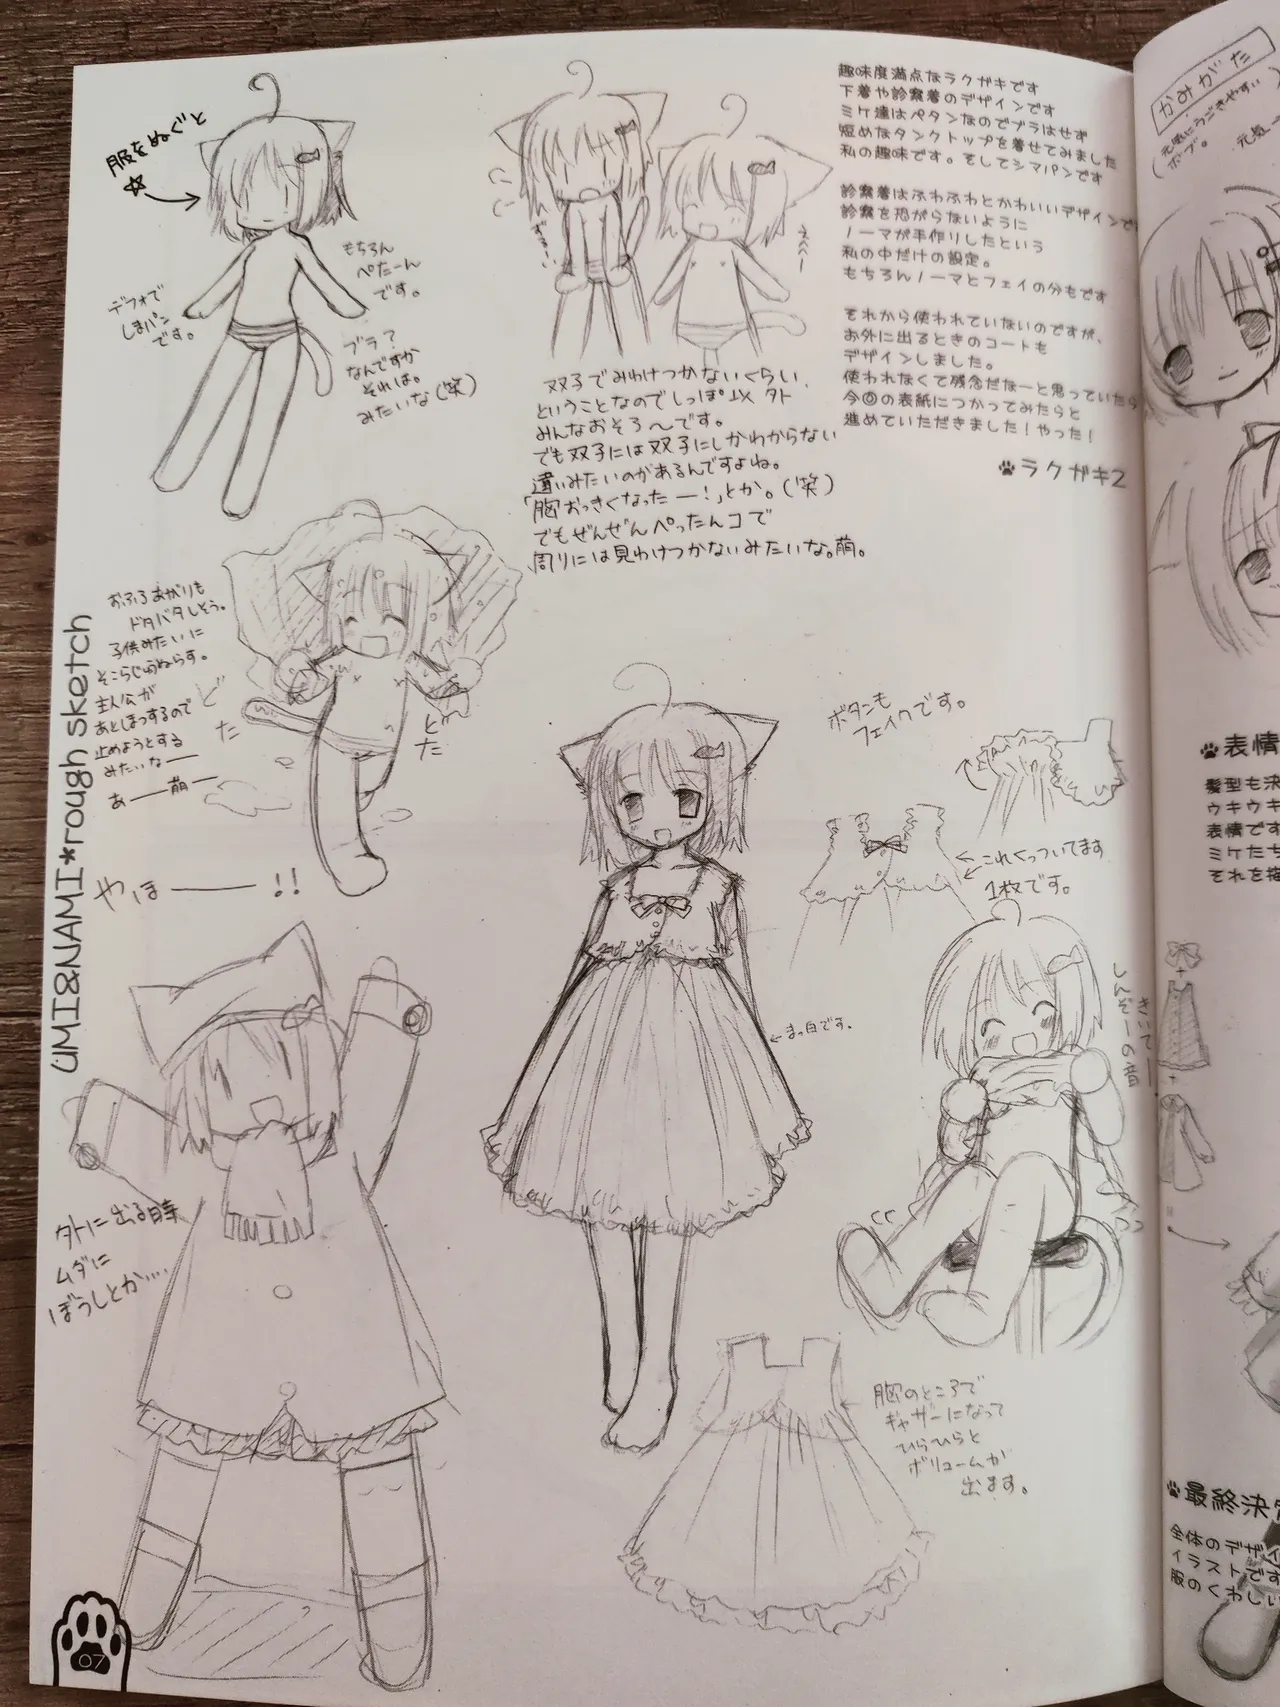 趣味度満点なラクガキです
下着や診察着のデザインです
ミケ達はペタンなのでブラはせず
短めなタンクトップを着せてみました
私の趣味です。そしてシマパンです
診察着はふわふわとかわいいデザインで
診察を恐がらないように
ノーマが手作りしたという
私の中だけの設定。
もちろんノーマとフェイの分もです
それから使われていないのですが、
お外に出るときのコートも
デザインしました。
使われなくて残念だなーと思っていたら
今回の表紙につかってみたらと
進めていただきました！やった！
ラクガキ2
服をぬぐと
☆
もちろん
ぺたーん
です。
デフォで
しまパン
です。
ブラ？
なんですか
それは。
みたいな（笑）
えへへー
双子でみわけつかないくらい、
ということなのでしっぽ以外
みんなおそろ〜です。
でも双子には双子にしかわからない
違いみたいのがあるんですよね。
「胸おっきくなったー！」とか。（笑）
でもぜんぜんぺったんコで
周りには見わけつかないみたいな。萌。
おふろあがりも
ドタバタしそう。
子供みたいに
そこらじゅうぬらす。
主人公が
あとしまつするので
止めようとする
みたいなー
あー萌ー
どた
とた
やほー!!
UMI&NAMI*rough sketch
ボタンも
フェイクです。
←これくっついてます
1枚です。
←まっ白です。
きいてー
しんぞーの音
外に出る時
ムダに
ぼうしとか....
胸のところで
ギャザーになって
ひらひらと
ボリュームが
出ます。
07
かみがた
元気にうごきやすい
ボブ。
元気
表情
髪型も決
ウキウキ
表情です
ミケたち
それを描
最終決定
全体のデザイ
イラストです
服のくわしい